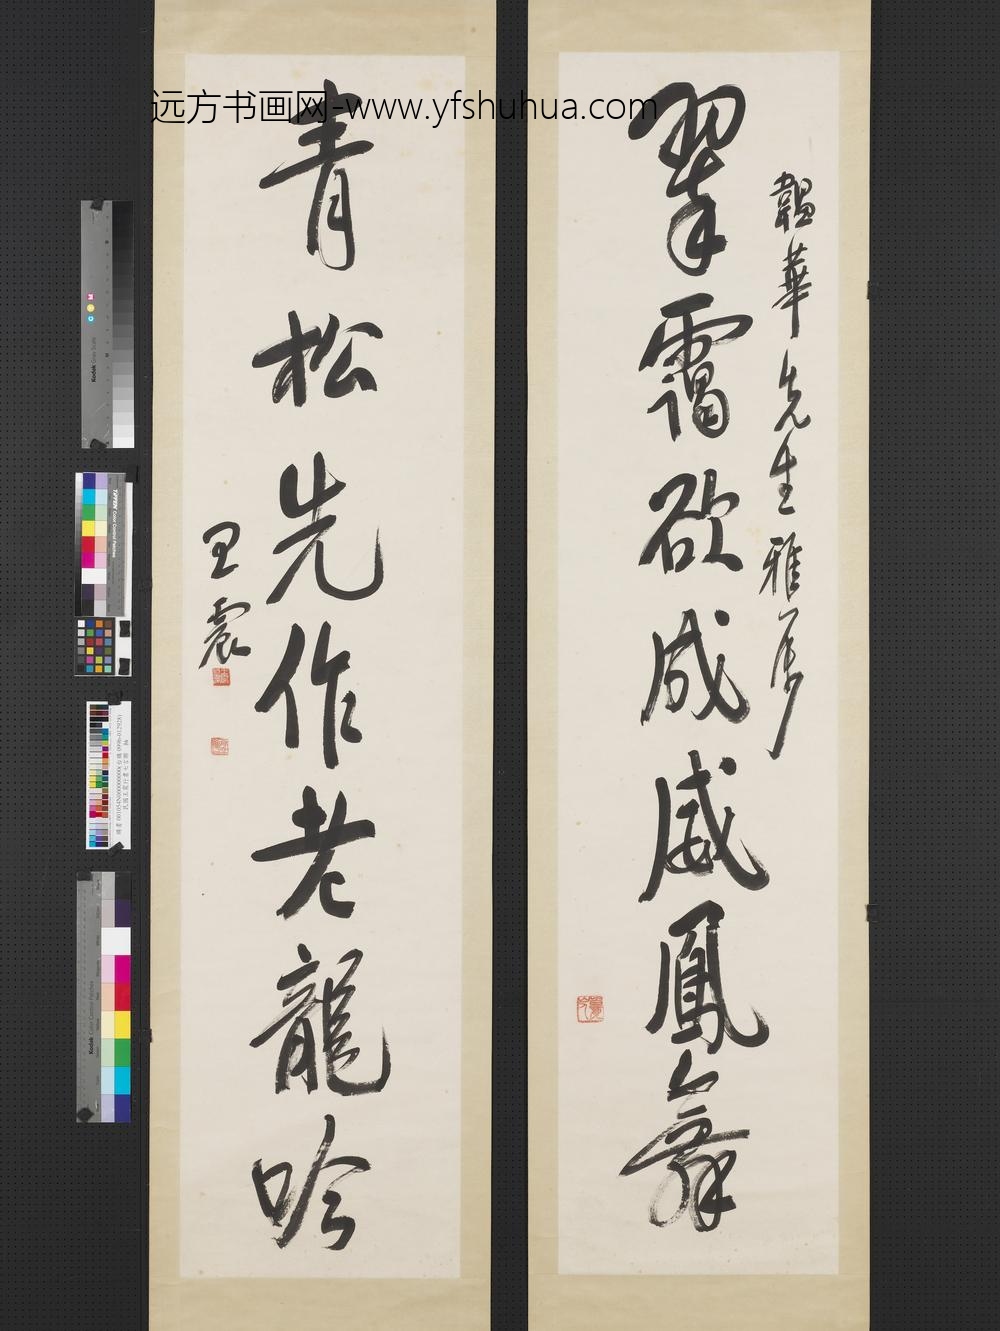 远方书画网-www.yfshuhua.com
韞華先生雅屬
翠靄欲成威鳳舞
青松先作老龍吟
王震
Kodak Gray Scale
TIFFEN Color Control Patches
Kodak Color Control Patches